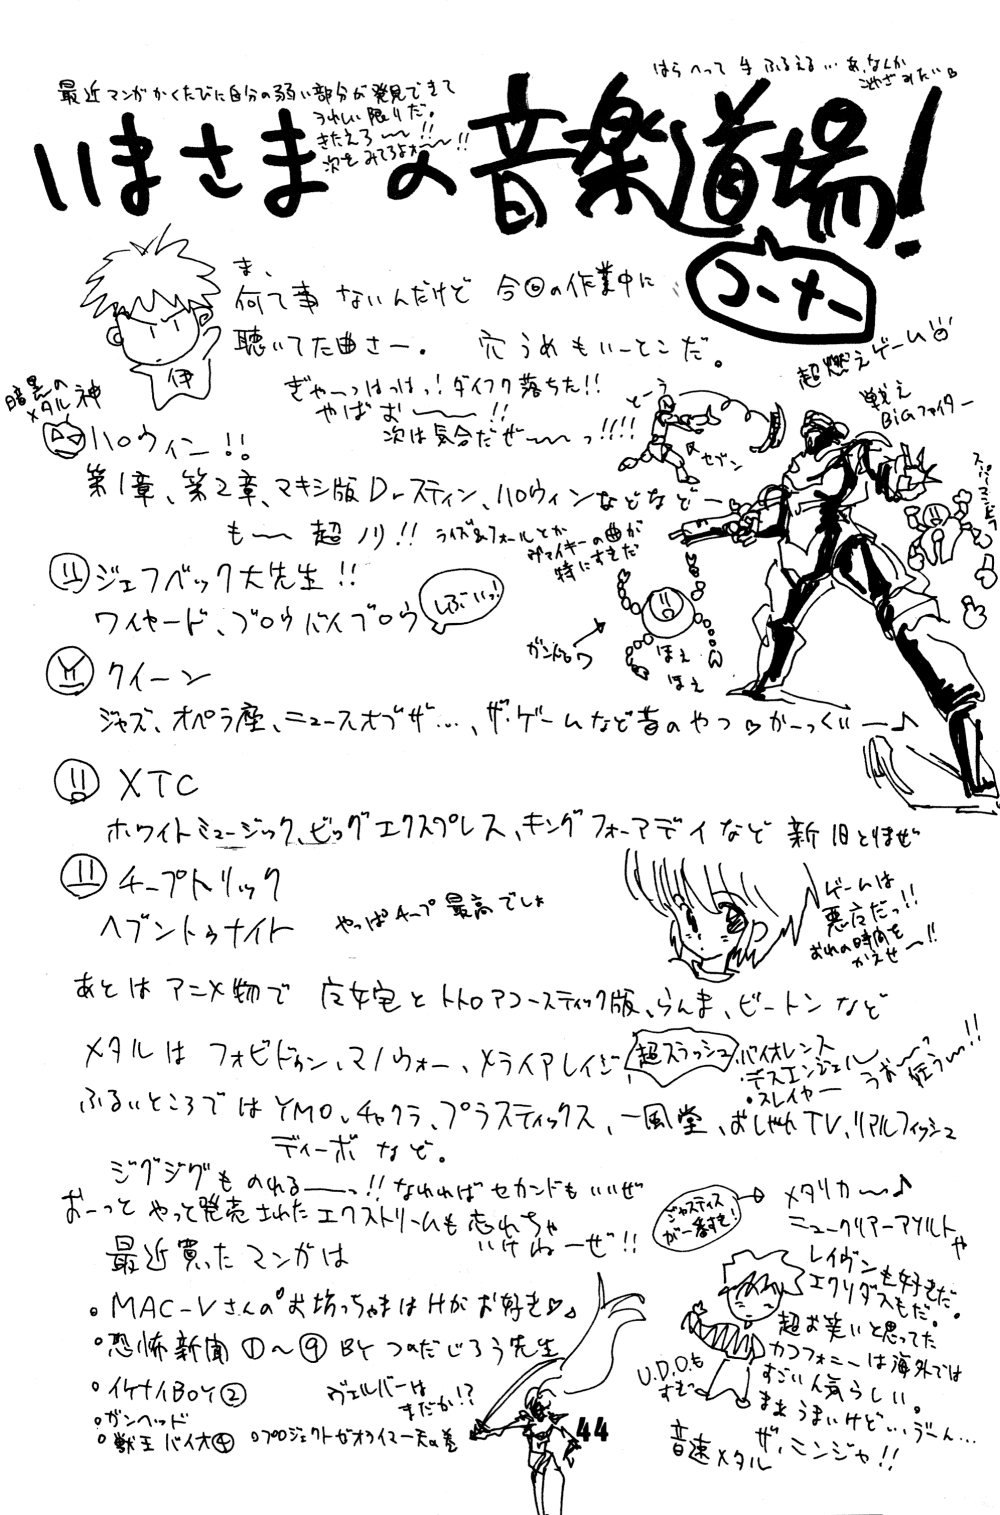 はらへって手ふるえる…あ、なんか
こやぎみたい♡
最近マンガかくたびに自分の弱い部分が発見できて
うれしい限りだ。
きたえろ〜〜!!
次をみてろよォ〜〜!!
いまさまの音楽道場!
コーナー
ま、
何て事ないんだけど 今回の作業中に
聴いてた曲さー。 穴うめもいーとこだ。
伊
ぎゃーっはっはっ!ダイフク落ちた!!
やばお〜〜!!
次は気合だぜ〜〜っ!!!!
暗黒の
メタル神
ハロウィン!!
第1章、第2章、マキシ版Dr.スティン、ハロウィンなどなどー
も〜〜超ノリ!!
ライズ&フォールとか
ヴァイキーの曲が
特にすきだ
超燃えゲーム
戦え
BiGファイター
セブン
ジェフベック大先生!!
ワイヤード、ブロウバイブロウ
しぶいっ!
ほえ
ほえ
クイーン
ジャズ、オペラ座、ニュースオブザ…、ザ・ゲームなど昔のやつ♡かーっくいー♪
XTC
ホワイトミュージック、ビッグエクスプレス、キングフォーアデイなど新旧とりまぜ
チープトリック
ヘブントゥナイト
やっぱチープ最高でしょ
ゲームは
悪魔だっ!!
おれの時間を
かえせ〜!!
あとはアニメ物で 魔女宅とトトロアコースティック版、らんま、ビートンなど
メタルはフォビドゥン、マノウォー、メライアレイジ、
超スラッシュ
・バイオレンス
・デスエンジェル
・スレイヤー
うお〜〜っ
狂う〜!!
ふるいところではYMO、チャクラ、プラスティックス、一風堂、おしゃれTV、リアルフィッシュ
ディーボなど。
ジグジグものれる〜〜っ!!なれればセカンドもいいぜ
おーっとやっと発売されたエクストリームも忘れちゃ
いけねーぜ!!
ジャスティス
が一番すき!
メタリカ〜♪
ニュークリアーアソルトや
レイヴンも好きだ。
エクソダスもだ。
超お笑いと思ってた
カコフォニーは海外では
すごい人気らしい。
まあうまいけど…、うーん…
U.D.O.も
すき
音速メタル ザ、ニンジャ!!
最近買ったマンガは
・MAC-Vさんの"お坊っちゃまはHがお好き♡"
・恐怖新聞①〜⑨ BY つのだじろう先生
・イケナイBOY②
・ガンヘッド
・獣王バイオ④
・プロジェクトゼオライマー天の巻
ヴェルバーは
まだか!?
44